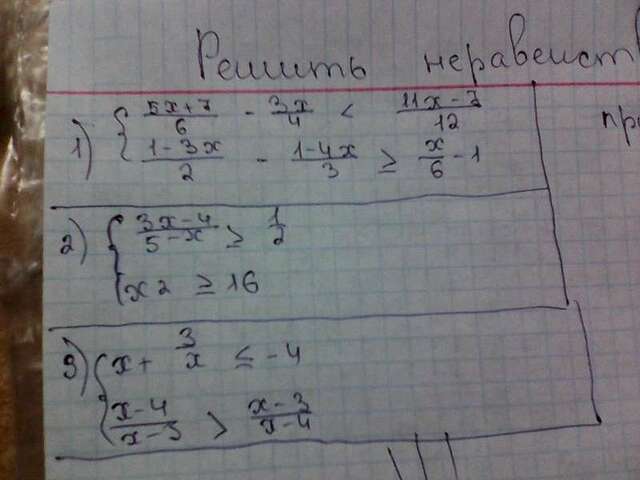 Решить неравенст
1) { (5x+7)/6 - 3x/4 < (11x-7)/12
(1-3x)/2 - (1-4x)/3 ≥ x/6 - 1
2) { (3x-4)/(5-x) ≥ 1/2
x2 ≥ 16
3) { x + 3/x ≤ -4
(x-4)/(x-3) > (x-3)/(x-4)